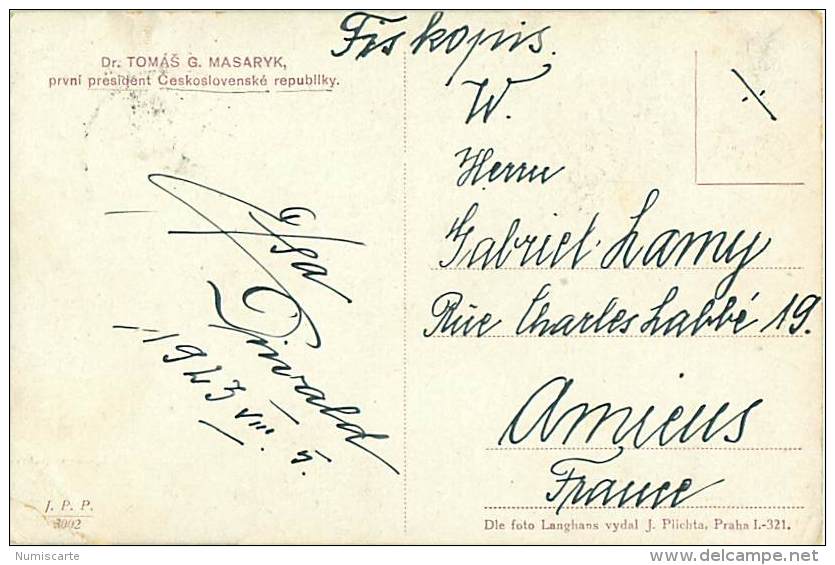 Dr. TOMÁŠ G. MASARYK,
první president Československé republiky.
Tiskopis.
W.
Herrn
Gabriel Lamy
Rue Charles Labbé 19.
Amiens
France
Ilsa
1923 VIII. 5.
J. P. P.
3002
Dle foto Langhans vydal J. Plichta, Praha I.-321.
Numiscarte
www.delcampe.net